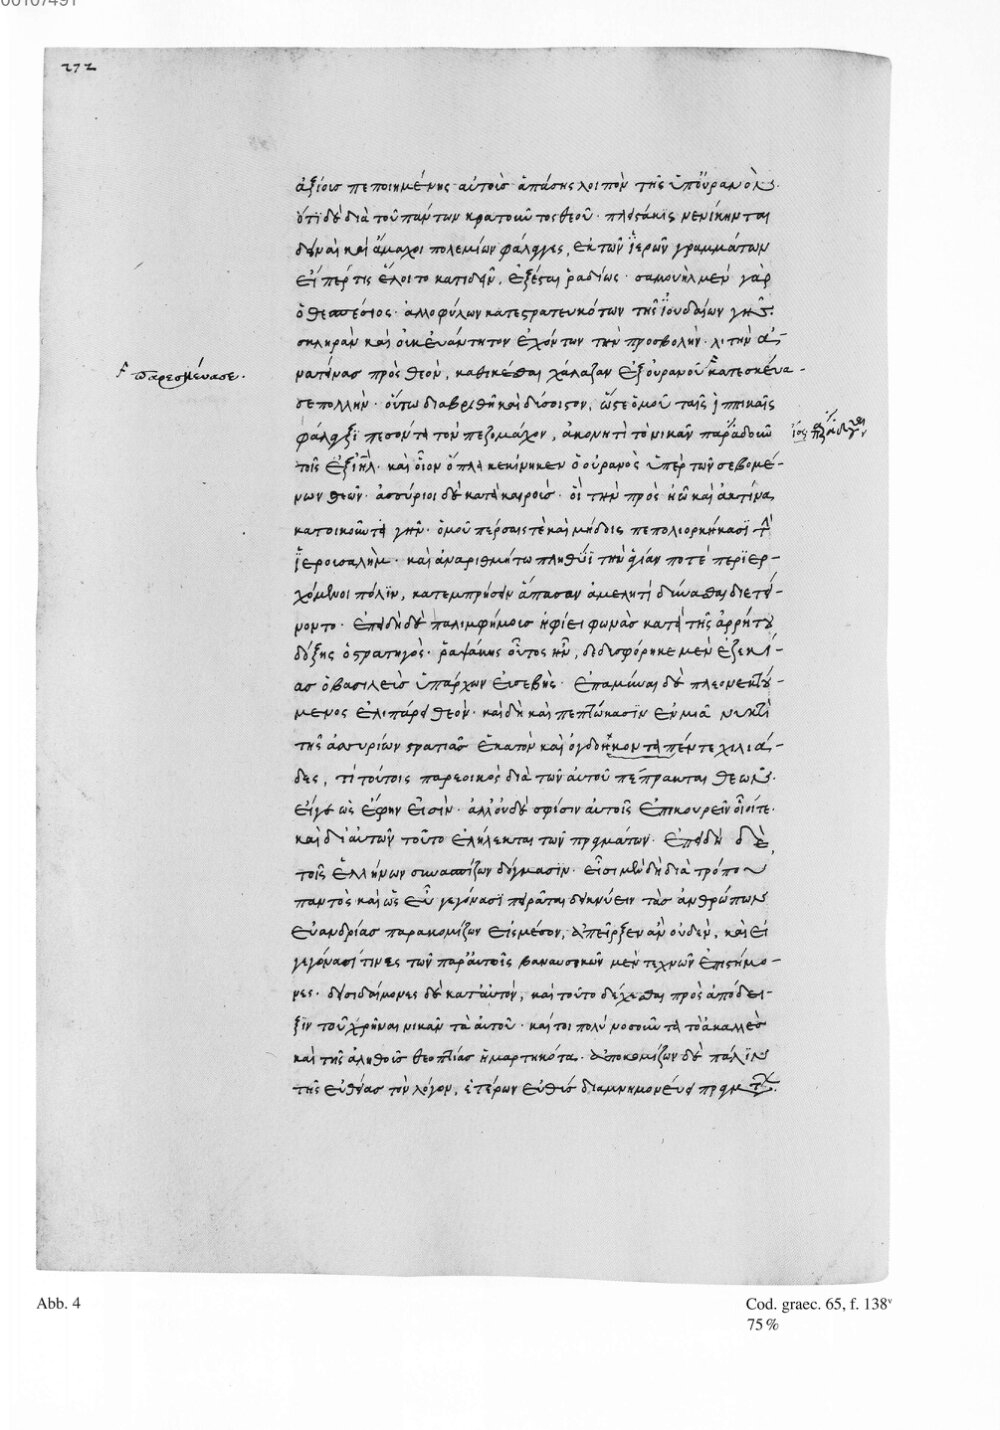 272
ἀξίοις πεποιημένης αὐτοῖς ἁπάσης λοιπὸν τῆς ὑπ' οὐρανὸν
ὅτι δὲ διὰ τοῦ πάντων κρατοῦντος θεοῦ· πλειστάκις νενίκηνται
δειναὶ καὶ ἄμαχοι πολεμίων φάλαγγες, ἐκ τῶν ἱερῶν γραμμάτων
εἴπερ τις ἕλοιτο κατιδεῖν, εἴσεται ῥαδίως· σαμουὴλ μὲν γὰρ
ὁ θεσπέσιος· ἀλλοφύλων κατεστρατευκότων τῆς ἰουδαίων γῆς·
σκληρὰν καὶ οὐκ εὐάντητον ἐχόντων τὴν προσβολὴν· λιτὴν ἀ-
νατείνας πρὸς θεὸν, καθικέσθαι χάλαζαν ἐξ οὐρανοῦ κατεσκεύα-
παρεσκεύασε·
σε πολλὴν· οὕτω δια βριθῆ καὶ δύσοιστον, ὥστε ὁμοῦ ταῖς ἱππικαῖς
φάλαγξι πεσόντα τὸν πεζομάχον, ἀκονητὶ τὸ νικᾶν παραδοῦν
τοῖς ἐξ ἰηλ· καὶ οἷον ὅπλα κεκίνηκεν ὁ οὐρανὸς ὑπὲρ τῶν σεβομέ-
νων θεὸν· ἀσσύριοι δὲ κατὰ καιροὺς· οἱ τὴν πρὸς ἠῶ καὶ ἀκτῖνα
κατοικοῦντες γῆν· ὁμοῦ πέρσαις τὲ καὶ μήδοις πεπολιορκήκασι τὴν
ἱερουσαλὴμ· καὶ ἀναριθμήτω πληθύϊ τὴν ἁγίαν ποτὲ περιερ-
χόμενοι πόλιν, κατεμπρήσειν ἅπασαν ἀμελητὶ δύνασθαι διετεί-
νοντο· ἐπειδὴ δὲ παλιμφήμους ἠφίει φωνὰς κατὰ τῆς ἀρρήτου
δόξης ὁ στρατηγὸς· ῥαψάκης οὗτος ἦν, δεδυσφόρηκε μὲν ἐζεκί-
ας ὁ βασιλεὺς ὑπάρχων εὐσεβὴς· ἐπαμῦναι δὲ πλεονεκτού-
μενος ἐλιπάρει θεὸν· καὶ δὴ καὶ πεπτώκασιν ἐν μιᾶ νυκτὶ
τῆς ἀσσυρίων στρατιᾶς ἑκατὸν καὶ ὀγδοήκοντα πέντε χιλιά-
δες, τί τούτοις παρεοικὸς διὰ τῶν αὐτοῦ πέπρακται θεῶν·
εἴγε ὡς ἔφην εἰσὶν· ἀλλ' οὐδὲ σφίσιν αὐτοῖς ἐπικουρεῖν οἷοίτε·
καὶ δι' αὐτῶν τοῦτο ἐλήλεκται τῶν πραγμάτων· ἐπειδὴ δὲ
τοῖς ἑλλήνων συνασπίζων δόγμασιν· εἶσι μὲν δὴ διὰ τρόπου
παντὸς καὶ ὡς εὖ γεγόνασι πειρᾶται δεικνύειν τὰς ἀνθρώπων
εὐανδρίας παρακομίζων εἰς μέσον, ἀπεῖρξεν ἂν οὐδὲν, καὶ εἰ
γεγόνασί τινες τῶν παρ' αὐτοῖς βαναυσικῶν μὲν τεχνῶν ἐπιστήμο-
νες· δεισιδαίμονες δὲ κατ' αὐτὸν, καὶ τοῦτο δέχεσθαι πρὸς ἀπόδει-
ξιν τοῦ χρῆναι νικᾶν τὰ αὐτοῦ· καίτοι πολὺ νοσοῦντα τὸ ἀκαλλὲς
καὶ τῆς ἀληθοῦς θεοπτίας ἡμαρτηκότα· ἀποκομίζων δὲ πάλιν
τῆς εὐθείας τὸν λόγον, ἑτέρων εὐθὺς διαμνημονεύει πραγμάτων·
Abb. 4
Cod. graec. 65, f. 138v
75 %